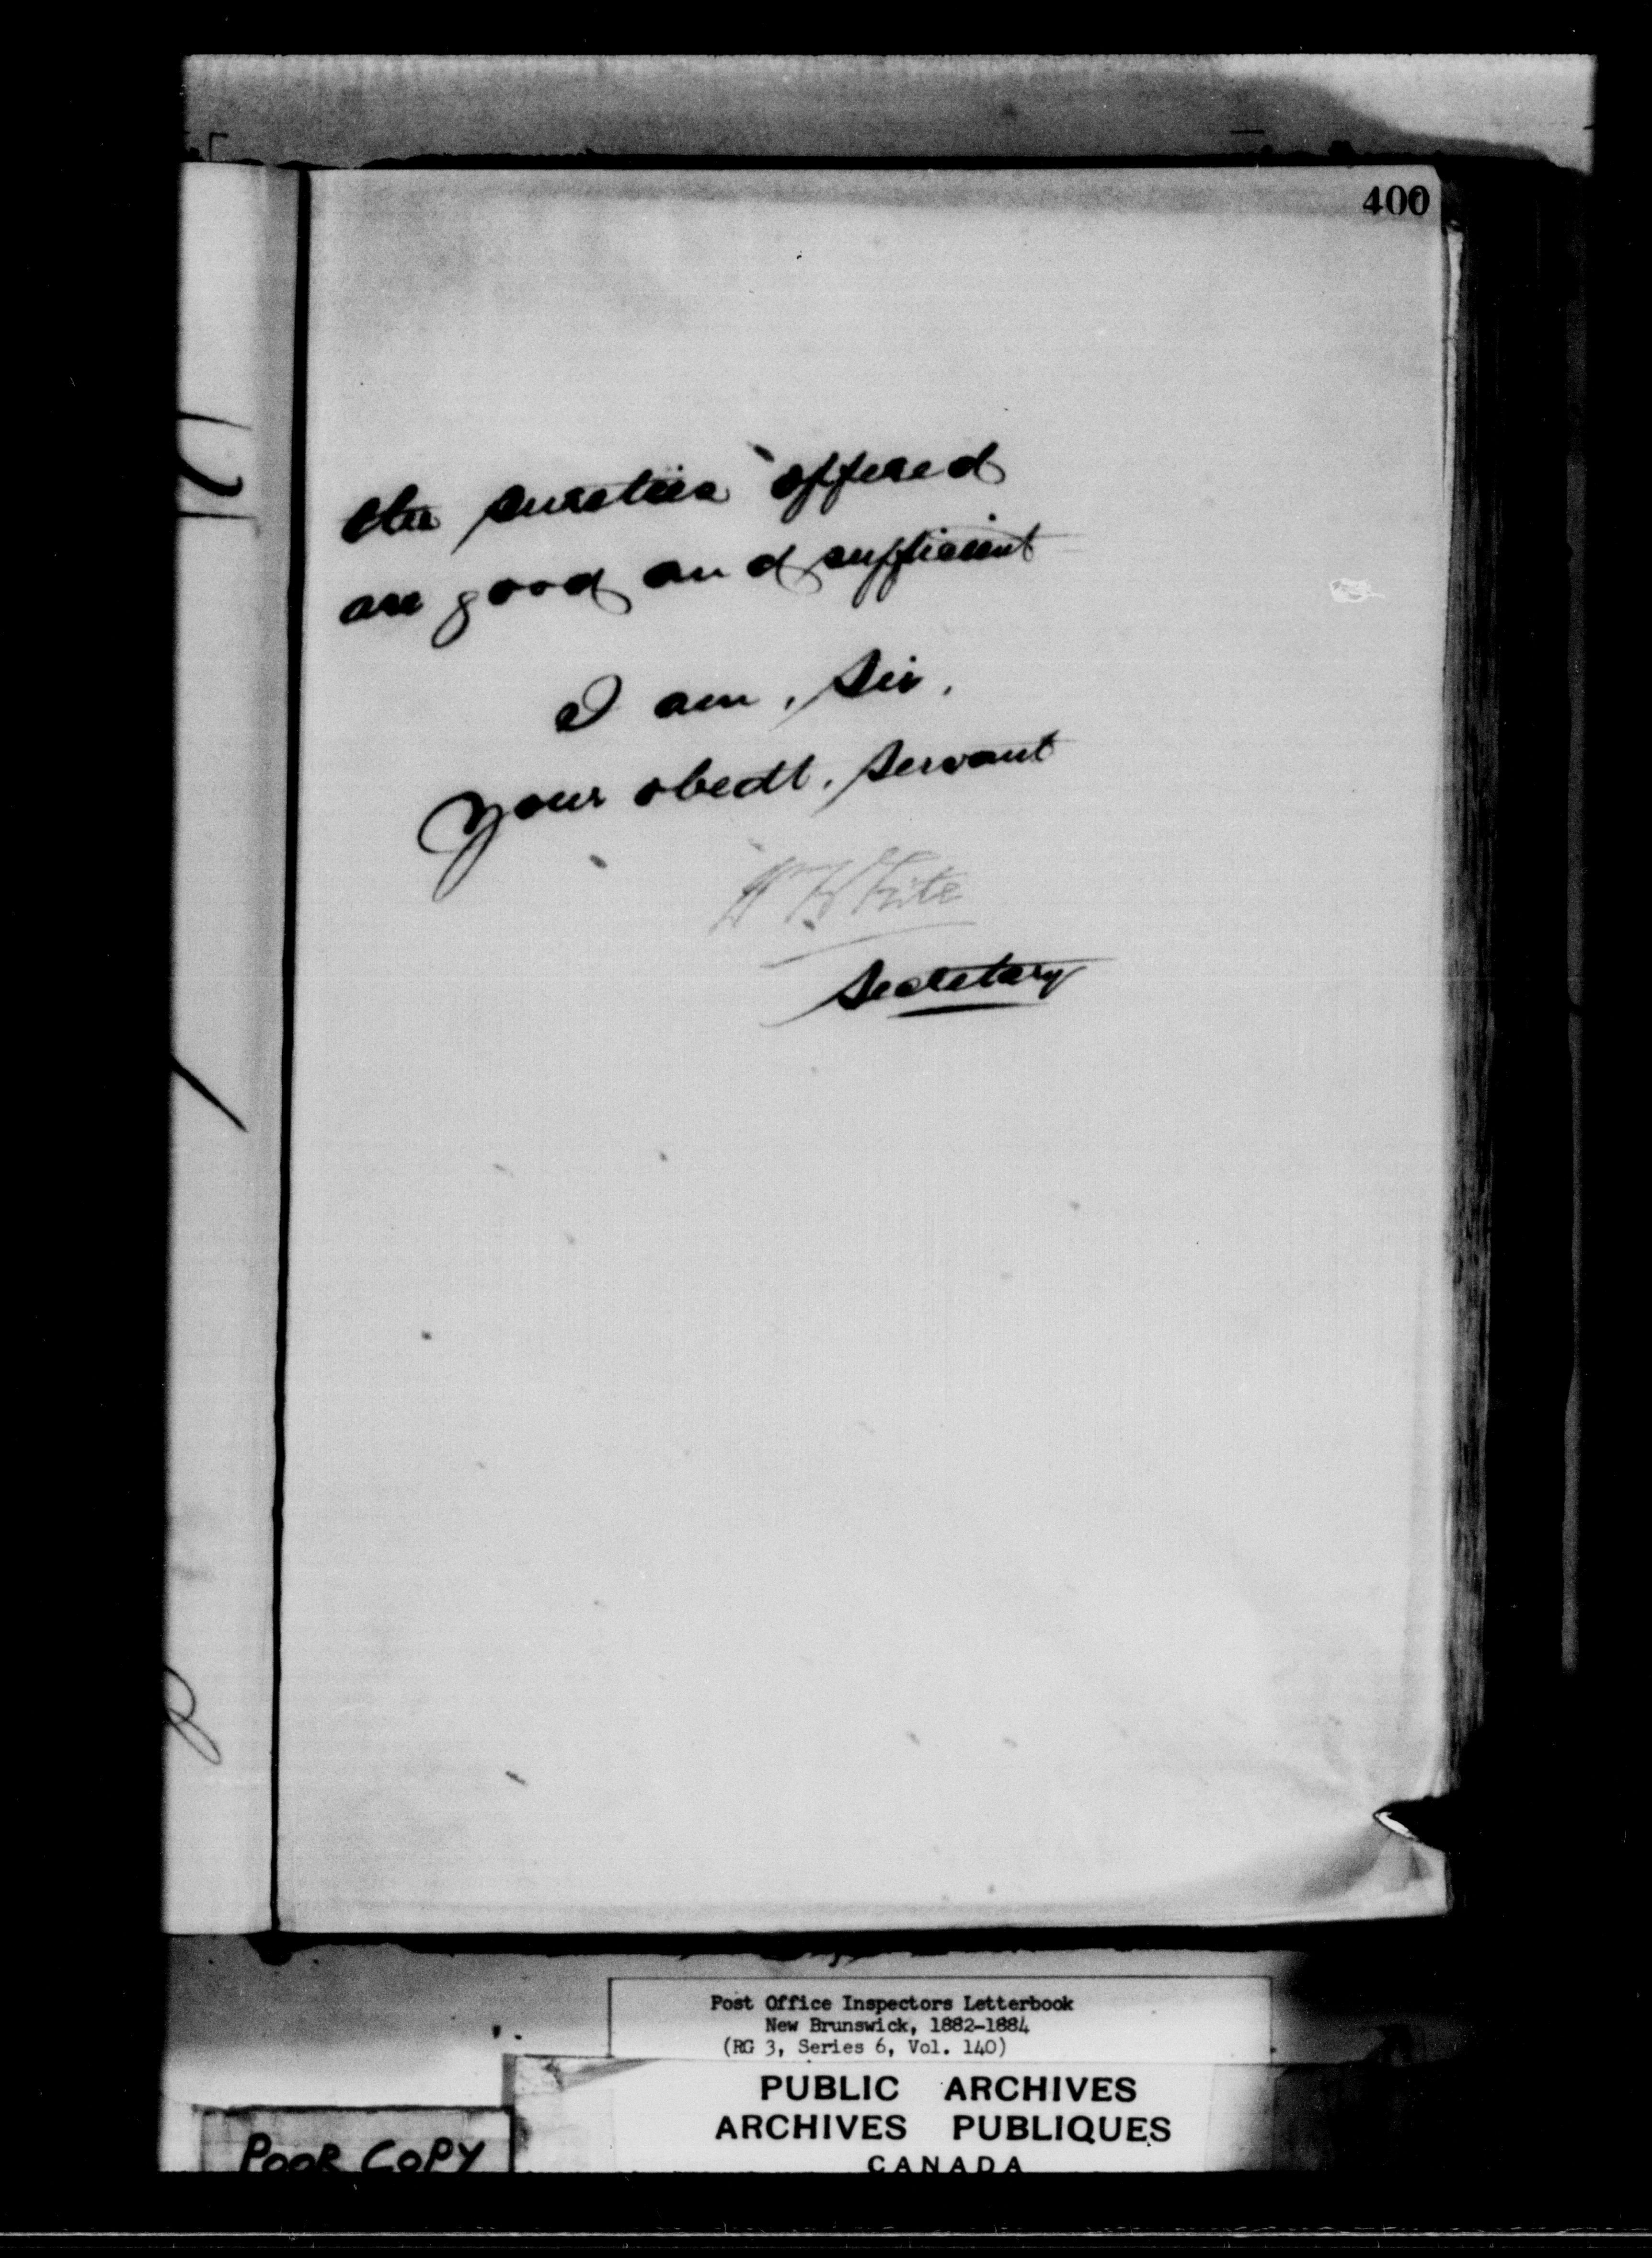 400
the sureties offered
are good and sufficient
I am, Sir,
Your obedt. Servant
W White
Secretary
Post Office Inspectors Letterbook
New Brunswick, 1882-1884
(RG 3, Series 6, Vol. 140)
PUBLIC ARCHIVES
ARCHIVES PUBLIQUES
CANADA
POOR COPY